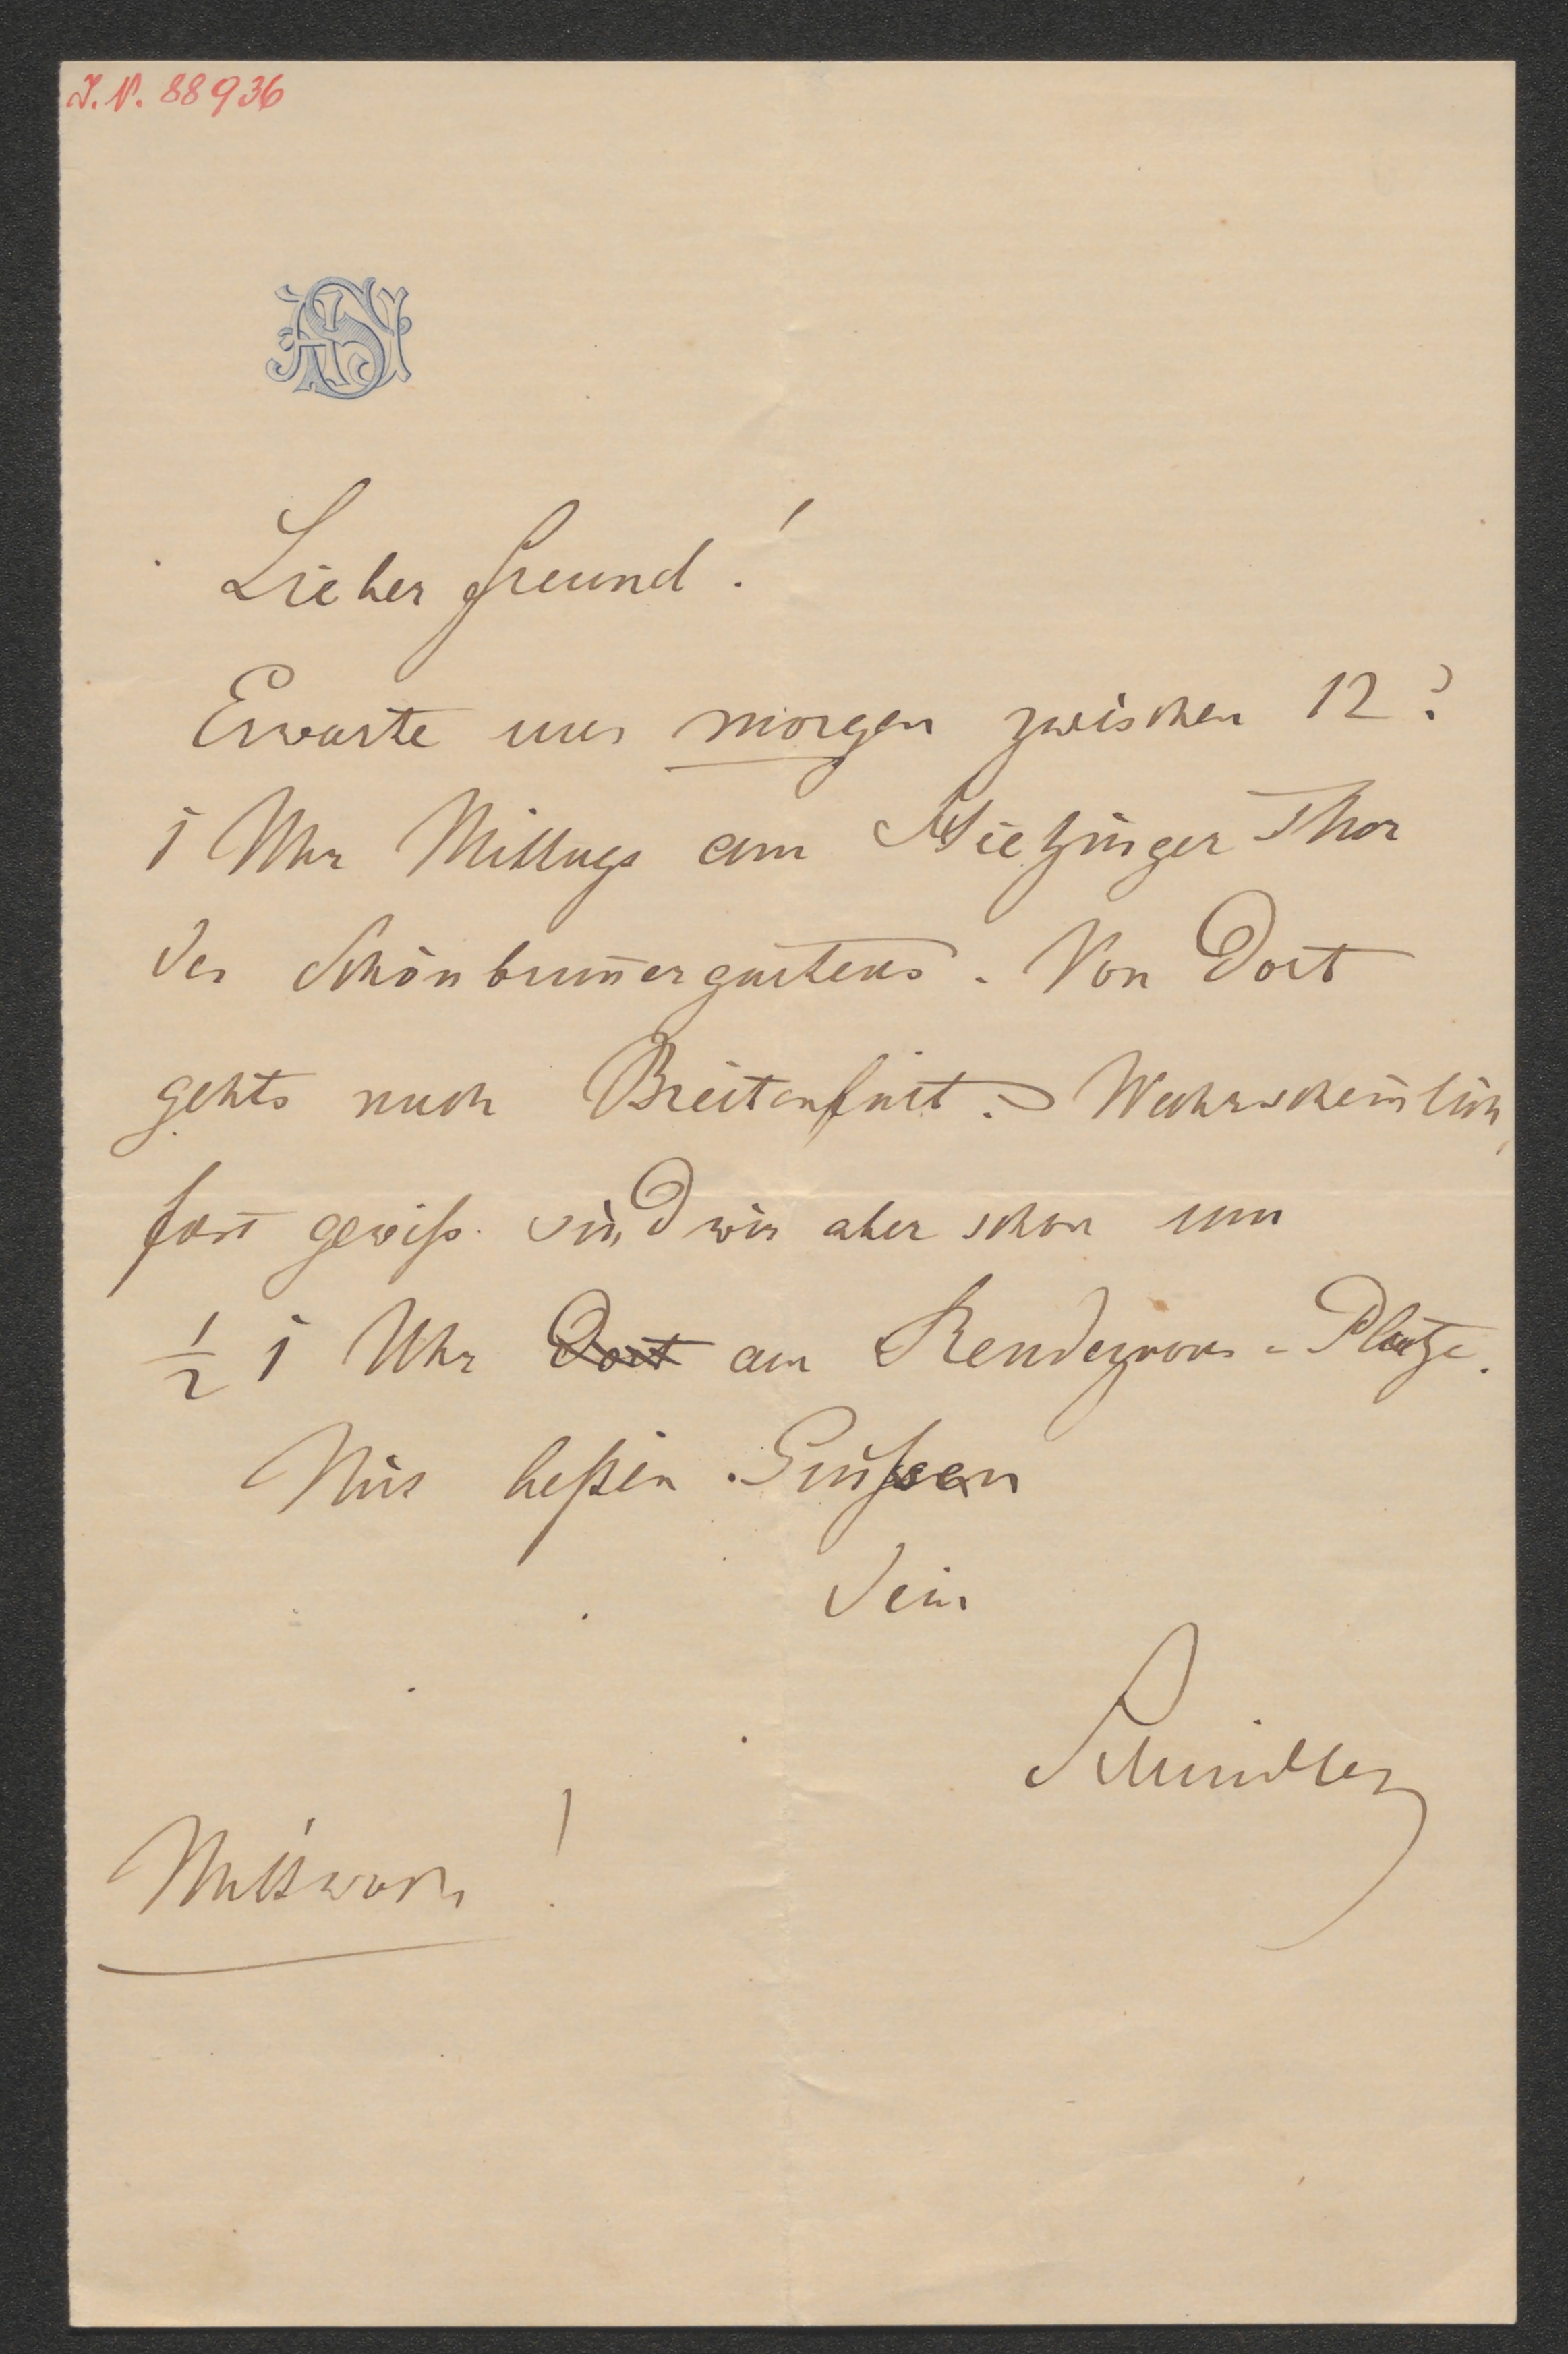 J. N. 88936
AS
Lieber Freund!
Erwarte uns morgen zwischen 12 &
1 Uhr Mittags am Hietzinger Thor
des Schönbrunnergartens. Von Dort
gehts nach Breitenfurt. Wahrscheinlich,
fast gewiß sind wir aber schon um
½ 1 Uhr Dort am Rendezvous-Platze.
Mit besten Grüßen
Dein
Schindler
Mittwoch!